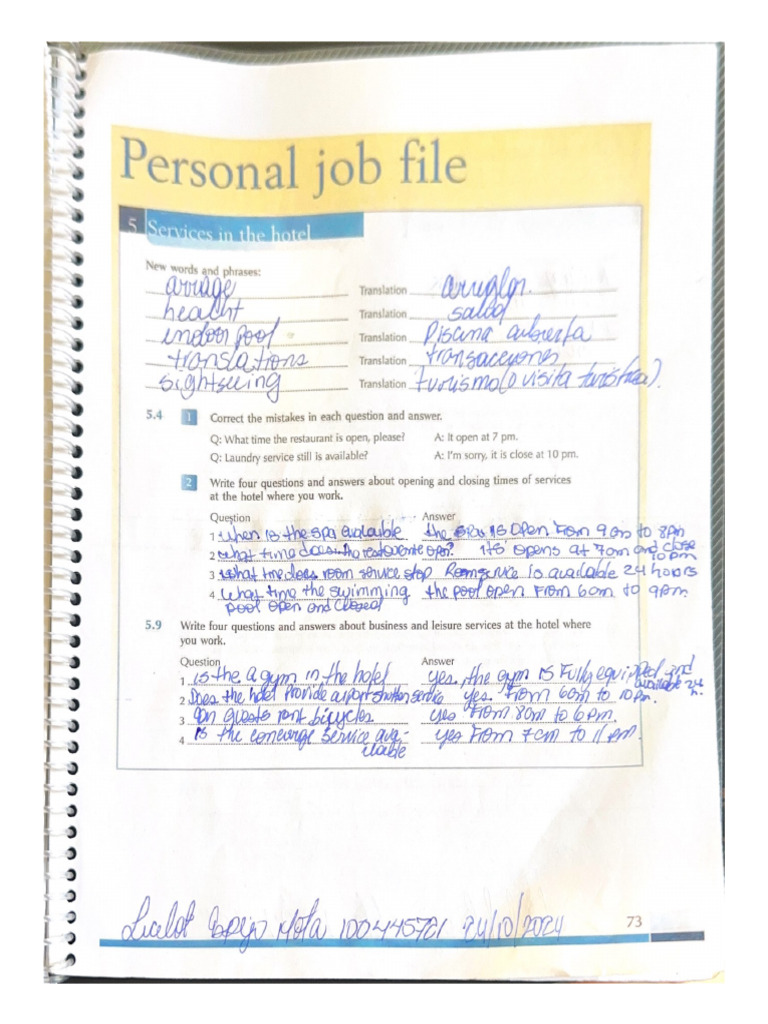 Personal job file
5 Services in the hotel
New words and phrases:
arrage Translation arreglar.
healht Translation salud
indoor pool Translation Piscina cubierta
translations Translation transacciones
sightseing Translation turismo (o visita turística).
5.4 1 Correct the mistakes in each question and answer.
Q: What time the restaurant is open, please? A: It open at 7 pm.
Q: Laundry service still is available? A: I'm sorry, it is close at 10 pm.
2 Write four questions and answers about opening and closing times of services
at the hotel where you work.
Question Answer
1 When is the spa available the spa is open From 9 am to 8pm
2 What time does the restaurante open? its opens at 7am and close 10 pm
3 What time does room service stop Room service is available 24 hours
4 What time the swimming the pool open From 6am to 9pm
pool open and closed
5.9 Write four questions and answers about business and leisure services at the hotel where
you work.
Question Answer
1 is the a gym in the hotel yes. the gym is Fully equipped and available 24 h.
2 Does the hotel Provide airport service yes. From 6am to 10pm.
3 Can guests rent bicycles yes From 8am to 6pm.
4 is the concierge service ava- yes From 7am to 11pm.
ilable
Mota 100445721 24/10/2024
73